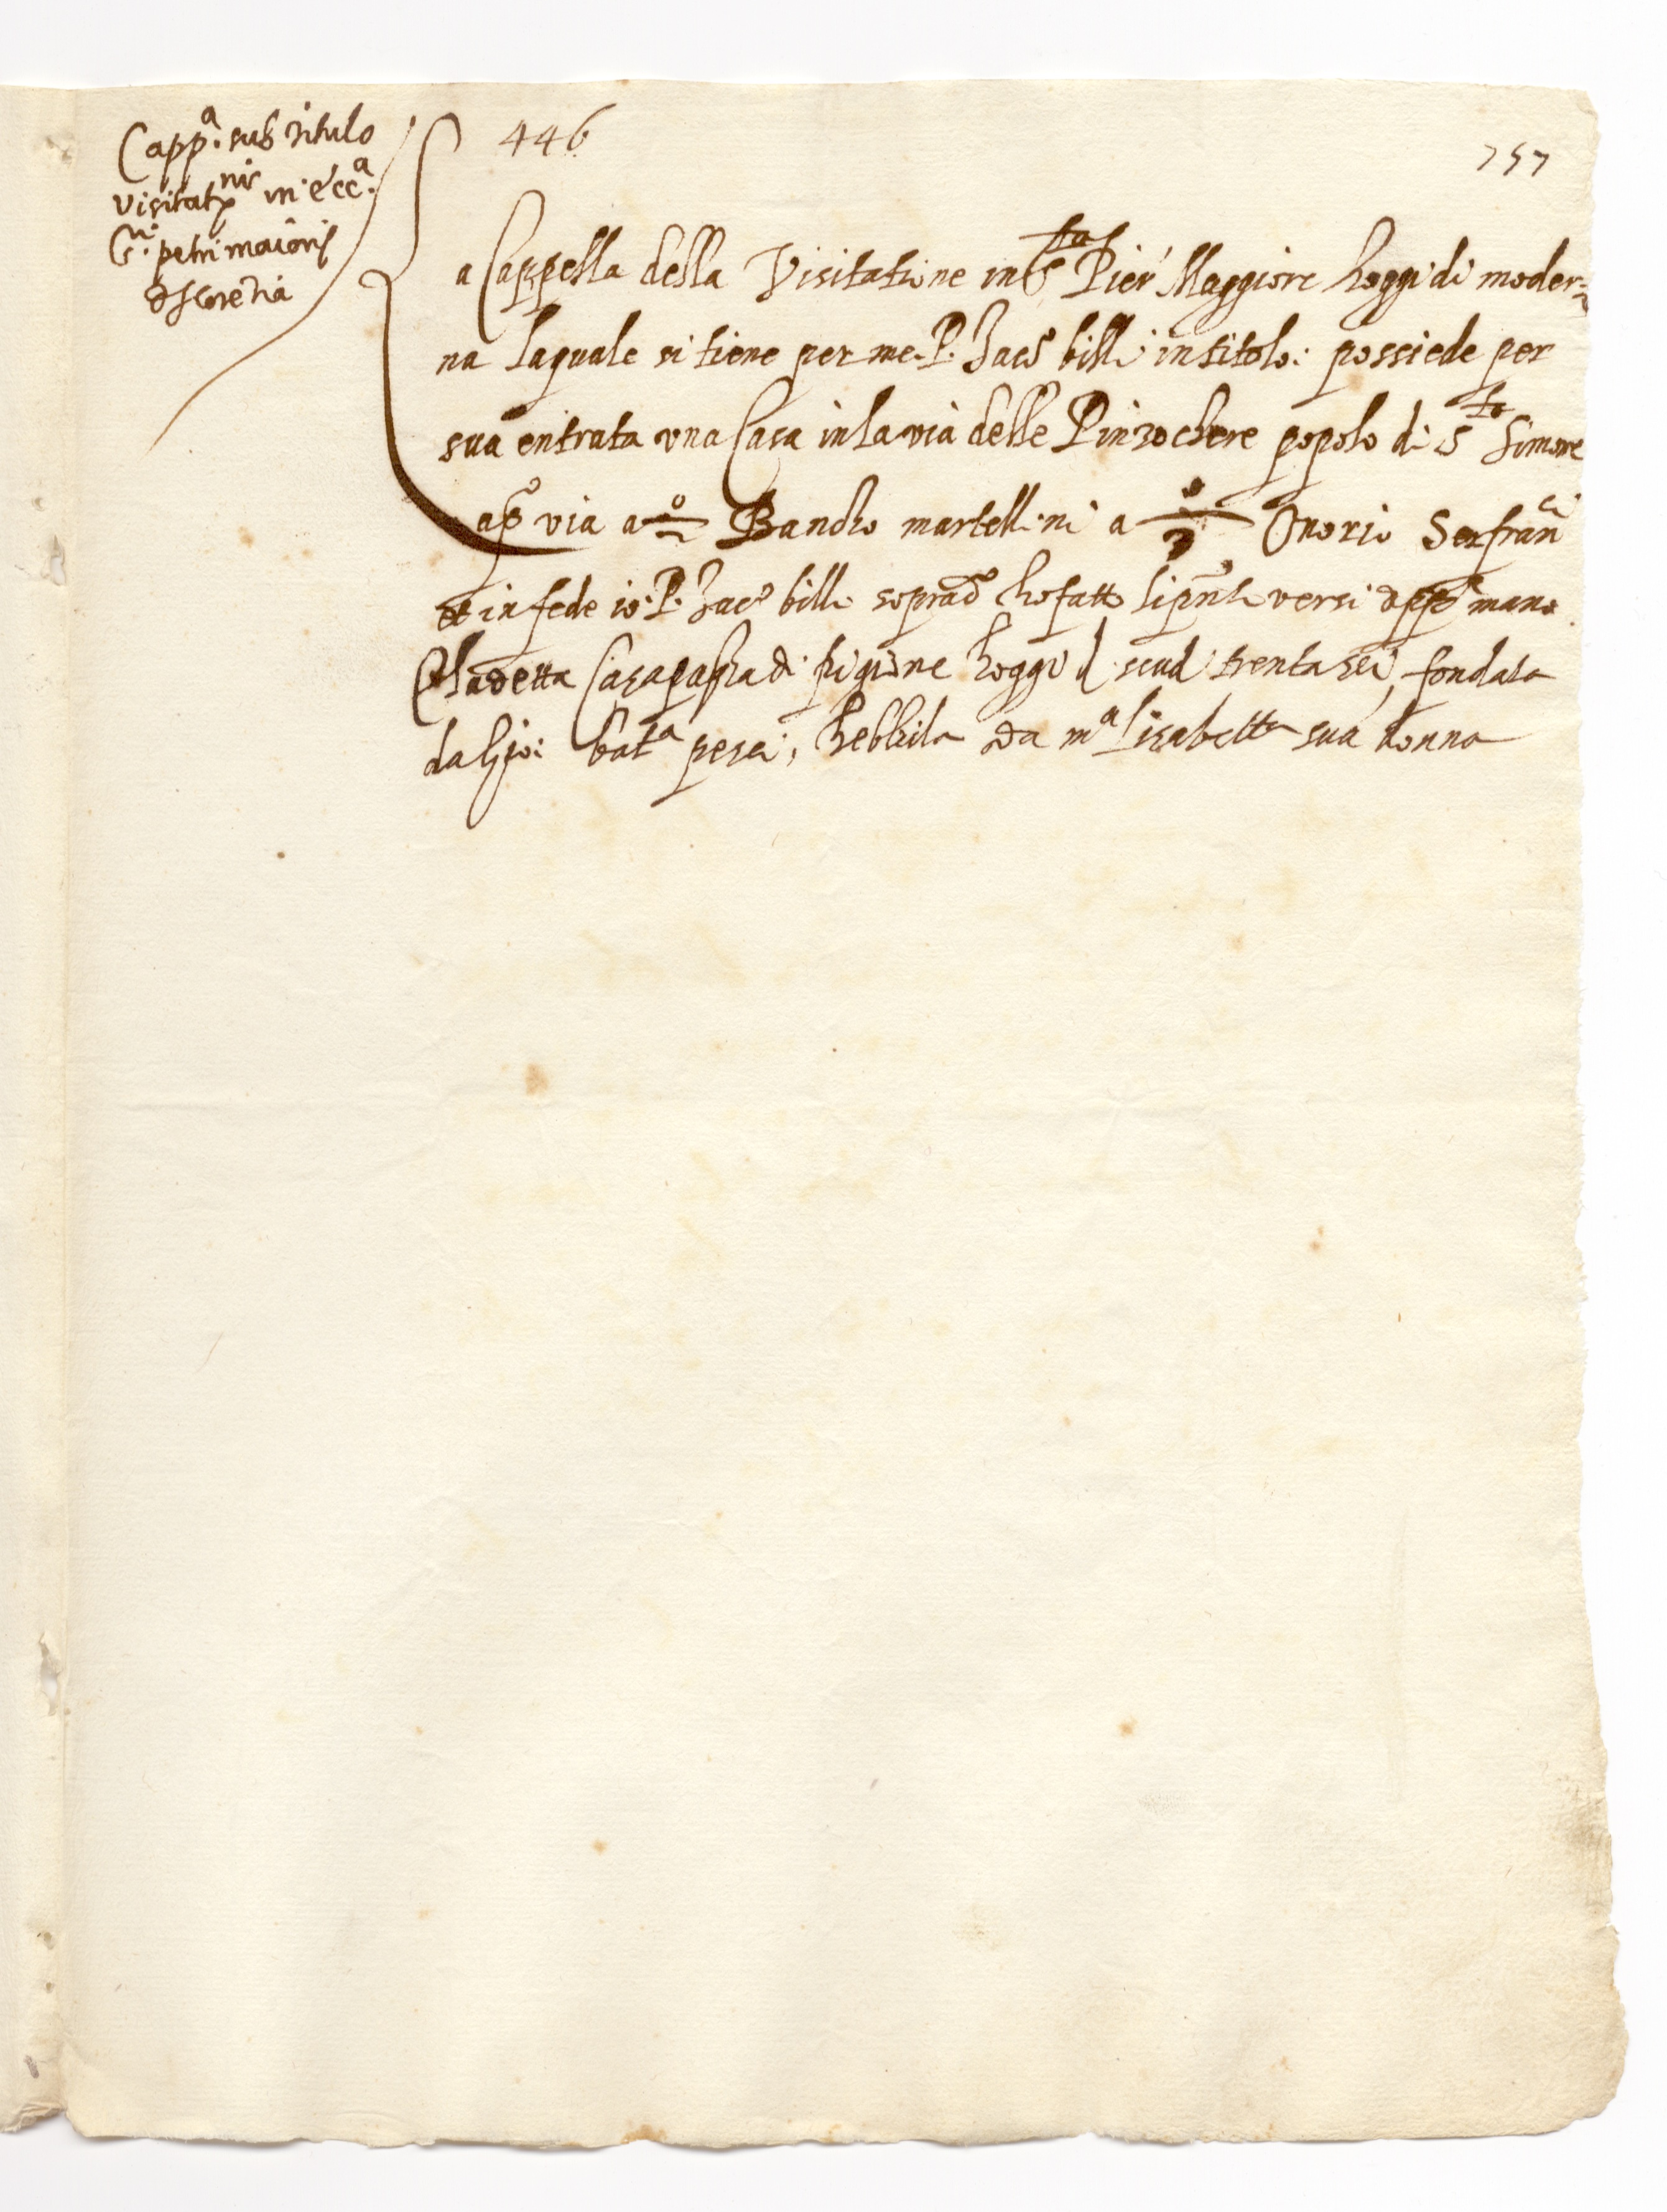 446
757
Capp.ª sub titulo
visitat.nis in ecc.ª
S.ti petri maioris
d florentia
La Cappella della Visitatione in S.ta Pier Maggiore hoggi di moder=
na laquale si tiene per me P. Jac.o billi in titolo: possiede per
sua entrata una Casa in la via delle Pinzochere popolo di S.to Simone
a p.o via a 2.o Bancho martellini a 3.o Onorio Serfran.ci
et in fede io P. Jac.o billi soprad.o ho fatto li pn.ti versi mano
la detta Casa paga di pigione hoggi scudi trenta sei, fondata
da Gio: bat.a pesci, hebbila da m.a lisabetta sua donna